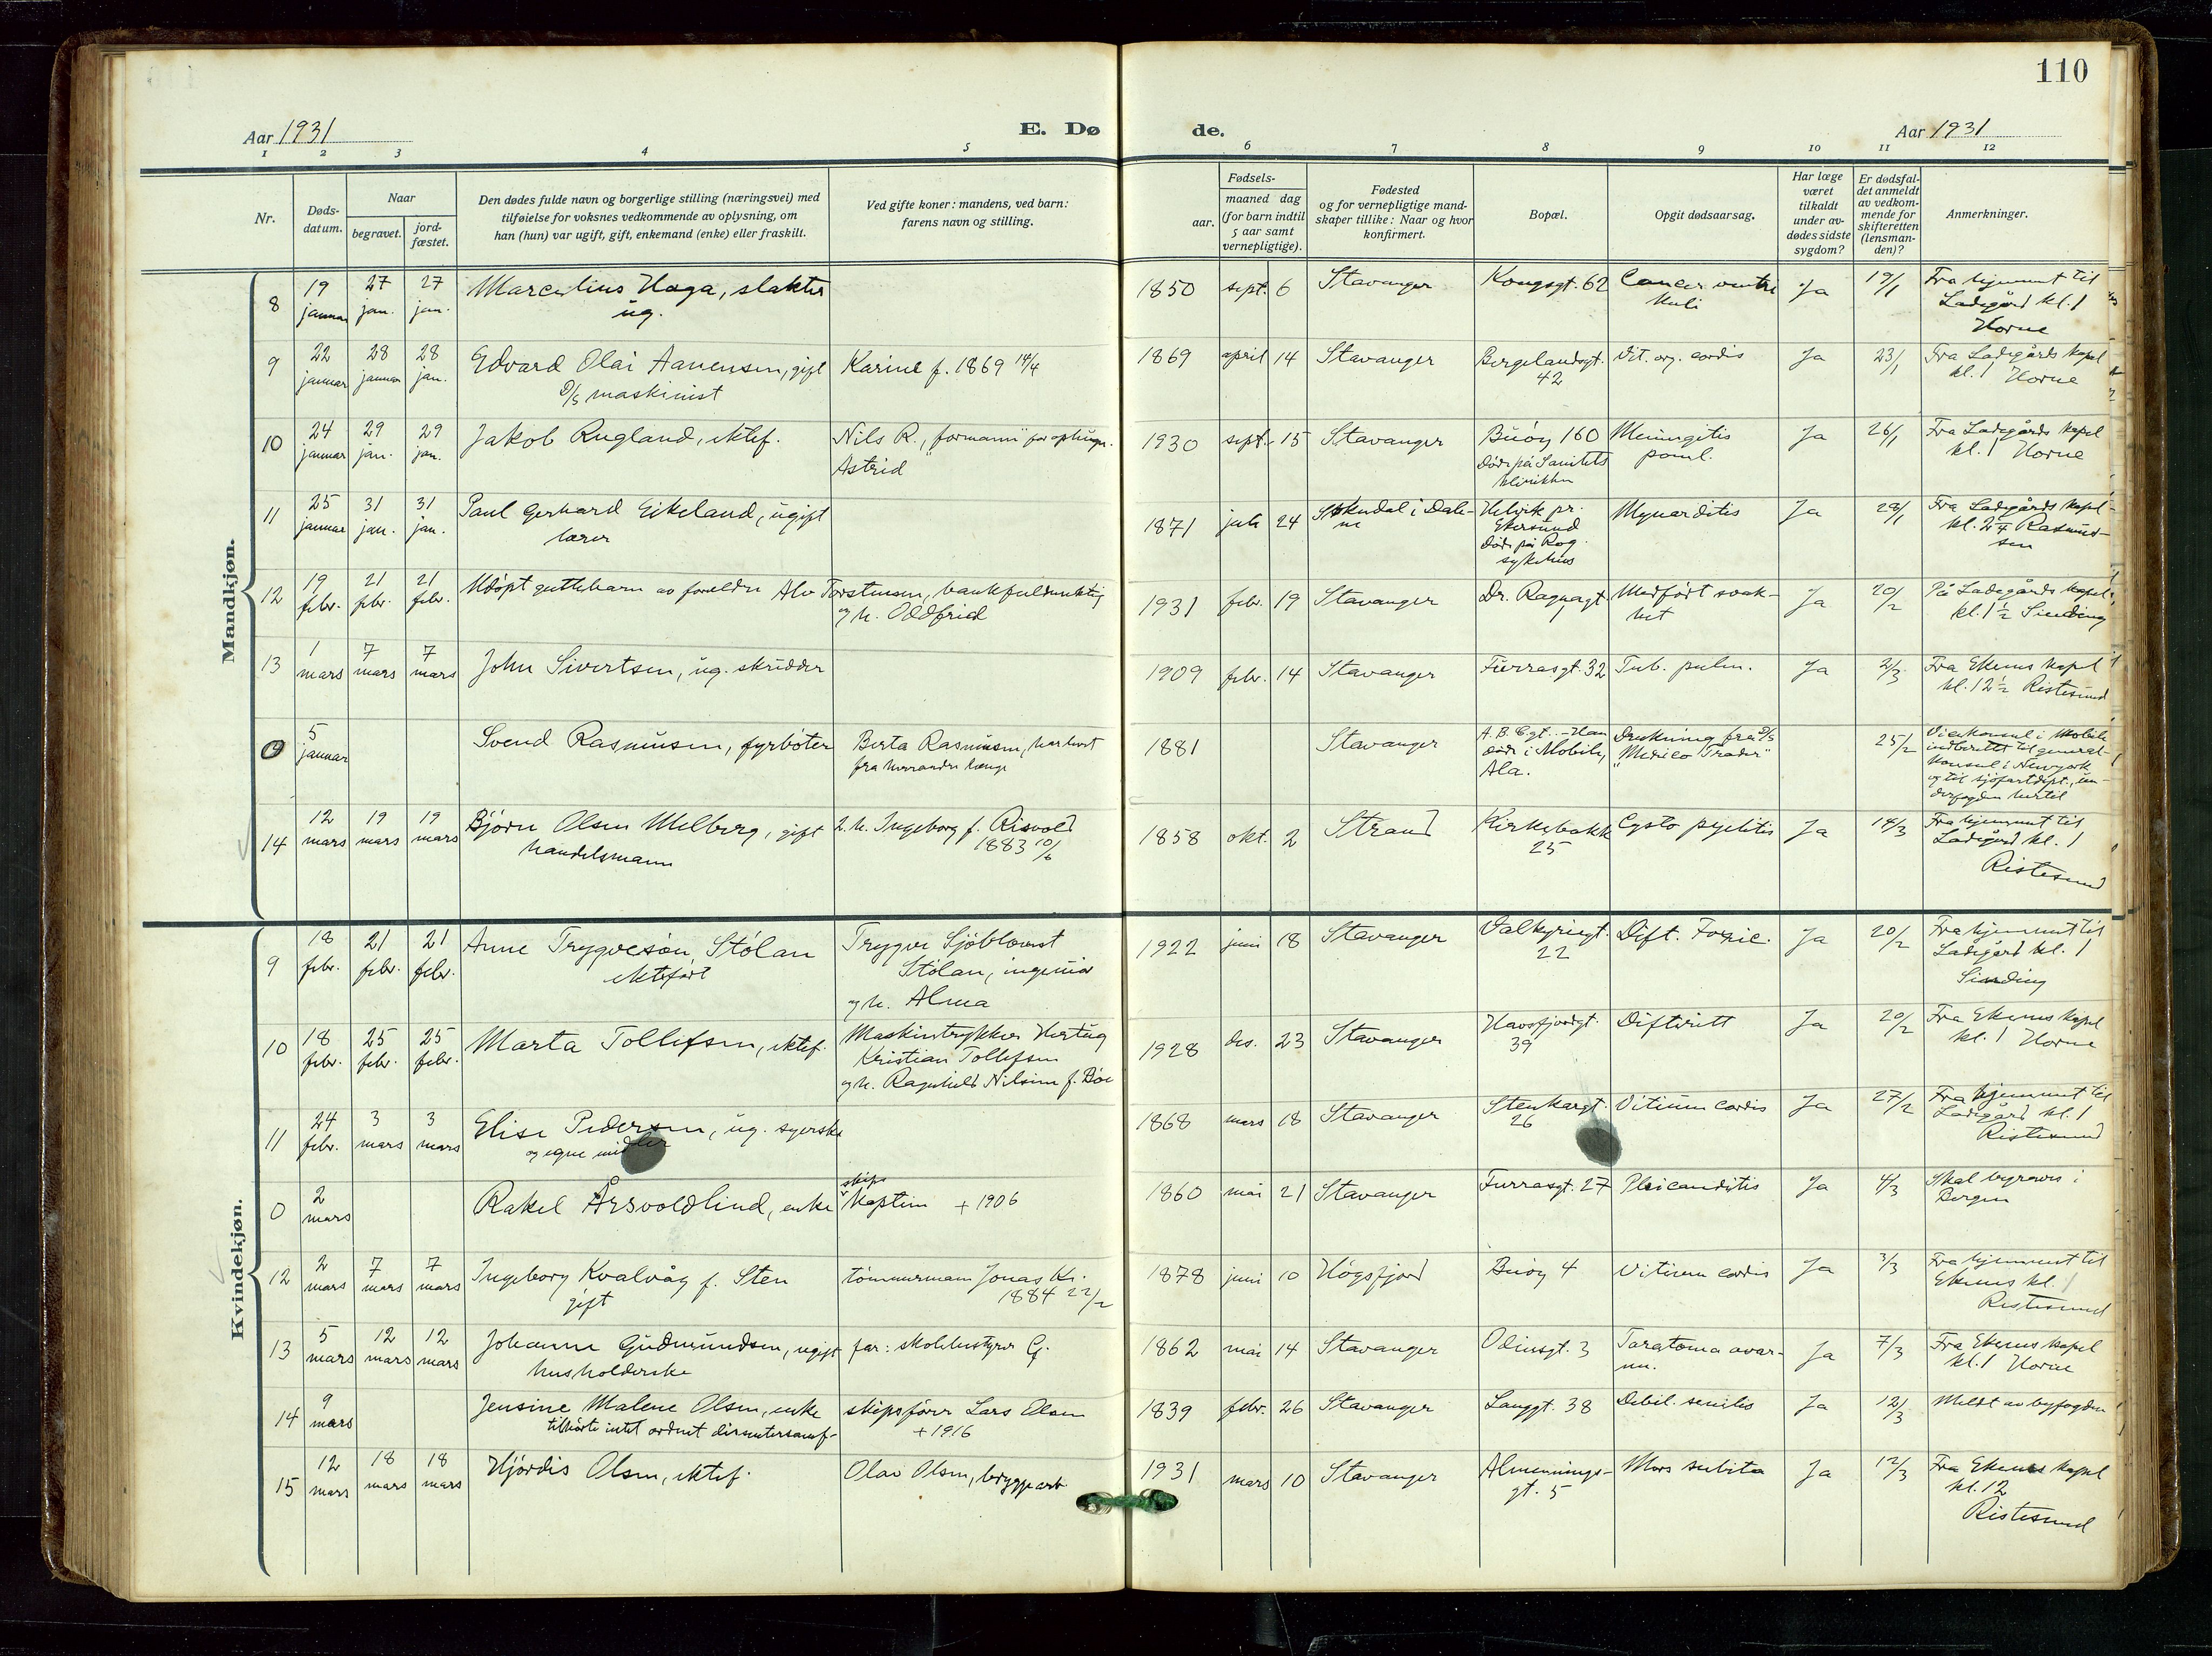 110
Aar 1931
E. Dø
de.
Aar 1931
1 2 3 4 5 6 7 8 9 10 11 12
Nr.
Døds-
datum.
Naar
begravet.
jord-
fæstet.
Den dødes fulde navn og borgerlige stilling (næringsvei) med
tilføielse for voksnes vedkommende av oplysning, om
han (hun) var ugift, gift, enkemand (enke) eller fraskilt.
Ved gifte koner: mandens, ved barn:
farens navn og stilling.
Fødsels-
aar.
maaned dag
(for barn indtil
5 aar samt
vernepligtige).
Fødested
og for vernepligtige mand-
skaper tillike: Naar og hvor
konfirmert.
Bopæl.
Opgit dødsaarsag.
Har læge
været
tilkaldt
under av-
dødes sidste
sygdom?
Er dødsfal-
det anmeldt
av vedkom-
mende for
skifteretten
(lensman-
den)?
Anmerkninger.
Mandkjøn.
8 19 januar 27 jan. 27 jan. Marcelius Haga, slakter
ug.
1850 sept. 6 Stavanger Kongsgt. 62 Cancer ventri
kuli
Ja 19/1 Fra hjemmet til
Ladegård kl. 1
Horne
9 22 januar 28 januar 28 jan. Edvard Olai Aanensen, gift
D/S maskinist
Karine f. 1869 14/4
1869 april 14 Stavanger Bergelandsgt.
42
Vit. org. cordis Ja 23/1 Fra Ladegårds kapel
kl. 1 Horne
10 24 januar 29 jan. 29 jan. Jakob Rugland, ektef.
Nils R., "formann" for
Astrid
1930 sept. 15 Stavanger Buøy 160
Døde på Sanitets
klinikken
Meningitis
Ja 26/1 Fra Ladegårds kapel
kl. 1 Horne
11 25 januar 31 jan. 31 jan. Paul Gerhard Eikeland, ugift
lærer
1871 juli 24 Sokndal i Dale-
ne
Helvik pr.
Ekersund
døde på Rog.
sykehus
Myocarditis Ja 28/1 Fra Ladegårds kapel
kl. 2 Rasmus-
sen
12 19 febr. 21 febr. 21 febr. Udøpt guttebarn av foreldre Alv Torstensen, bankfuldmektig
og h. Oddfrid
1931 febr. 19 Stavanger Dr. Ragnagt.
1
Medfødt svak-
het
Ja 20/2 På Ladegårds kapel
kl. 1 1/2 Sinding
13 1 mars 7 mars 7 mars John Sivertsen, ug. skredder
1909 febr. 14 Stavanger Furrasgt. 32 Tub. pulm. Ja 2/3 Fra Ekenes kapel
kl. 12 1/2 Ristesund
0 5 januar Svend Rasmussen, fyrbøter
Berta Rasmussen, har levet
fra hverandre længe
1881 Stavanger A.B.Cgt. - Han
døde i Mobile,
Ala.
Drukning fra D/S
"Mexico Trader"
25/2 Visekonsul i Mobile
indberettet til general-
konsul i Newyork
og til sjøfartsdept.,
hertil
14 12 mars 19 mars 19 mars Bjørn Olsen Melberg, gift
handelsmann
2. h. Ingeborg f. Risvold
1883 10/6
1858 okt. 2 Strand Kirkebakk
25
Cysto pyelitis Ja 14/3 Fra hjemmet til
Ladegård kl. 1
Ristesund
Kvindekjøn.
9 18 febr. 21 febr. 21 febr. Anne Trygvesøn Stølan
ektefødt
Trygve Sjöblomst
Stølan, ingeniør
og h. Alma
1922 juni 18 Stavanger Valkyriegt.
22
Dift. Toxic. Ja 20/2 Fra hjemmet til
Ladegård kl. 1
Sinding
10 18 febr. 25 febr. 25 febr. Marta Tollefsen, ektef.
Maskintrykker Hertug
Kristian Tollefsen
og h. Ragnhild Nilsine f. Bøe
1928 des. 23 Stavanger Havsfjordgt.
39
Difteritt Ja 20/2 Fra Ekenes kapel
kl. 1 Horne
11 24 febr. 3 mars 3 mars Elise Pedersen, ug. syerske
og egne midler
1868 mars 18 Stavanger Stenkargt.
26
Vitium cordis Ja 27/2 Fra hjemmet til
Ladegård kl. 1
Ristesund
0 2 mars Rakel Årsvoldlind, enke
skips
kaptein + 1906
1860 mai 21 Stavanger Furrasgt. 27 Ja 4/3 Skal begraves i
Bergen
12 2 mars 7 mars 7 mars Ingeborg Kvalvåg f. Sten
gift
tømmermann Jonas Kv.
1884 22/2
1878 juni 10 Høgsfjord Buøy 4 Vitium cordis Ja 3/3 Fra hjemmet til
Ekenes kl. 1
Ristesund
13 5 mars 12 mars 12 mars Johanne Gudmundsen, ugift
husholderske
far: skolebestyrer G.
1862 mai 14 Stavanger Odinsgt. 3 Taratoma ovar-
um.
Ja 7/3 Fra Ekenes kapel
kl. 1 Horne
14 9 mars Jensine Malene Olsen, enke
tilhørte intet ordnet dissentersamf.
skipsfører Lars Olsen
+ 1916
1839 febr. 26 Stavanger Langgt. 38 Debil. senilis Ja 12/3 Meldt av byfogden
15 12 mars 18 mars 18 mars Hjørdis Olsen, ektef.
Olav Olsen, bryggearb.
1931 mars 10 Stavanger Almennings-
gt. 5
Mors subita Ja 12/3 Fra Ekenes kapel
kl. 12
Ristesund